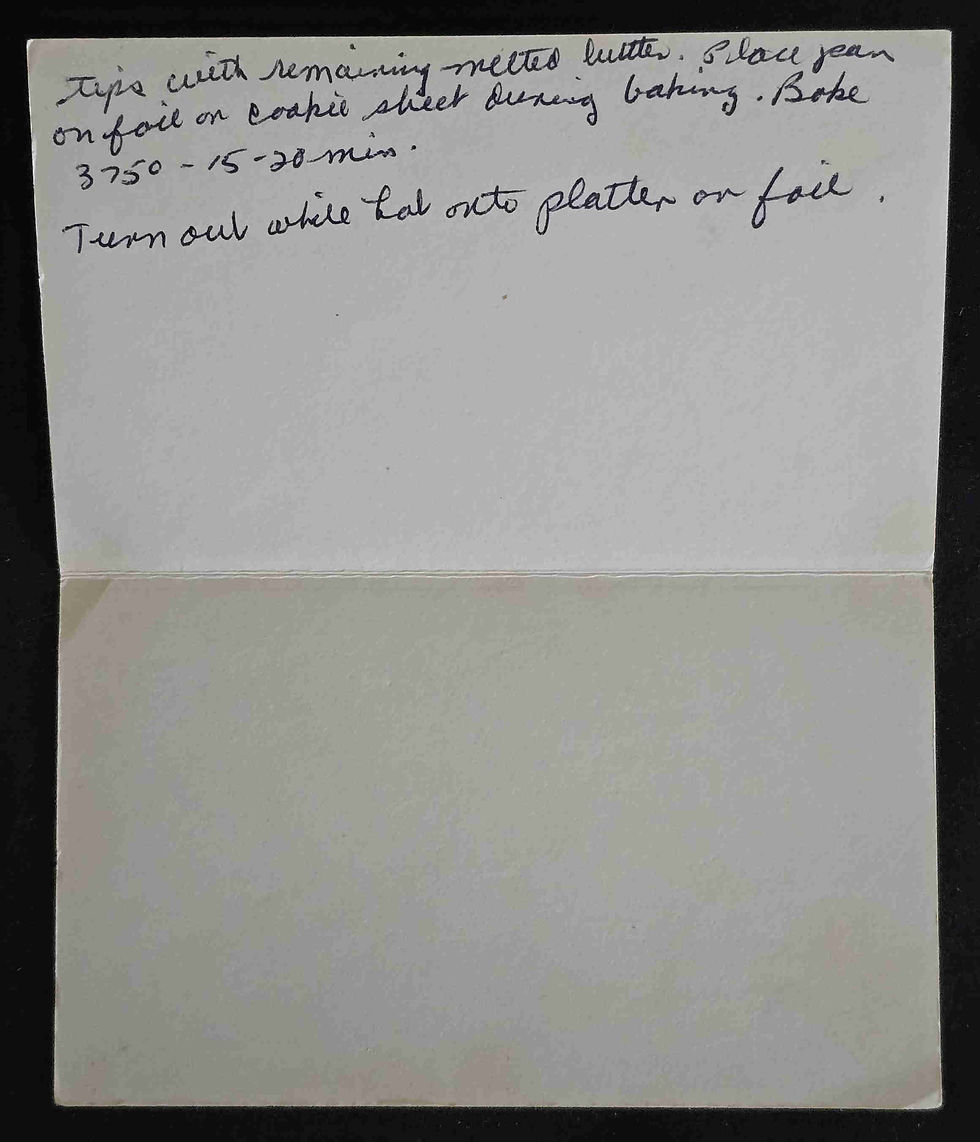 tips with remaining melted butter. Place pan
on foil on cookie sheet during baking. Bake
375° - 15-20 min.
Turn out while hot onto platter or foil.